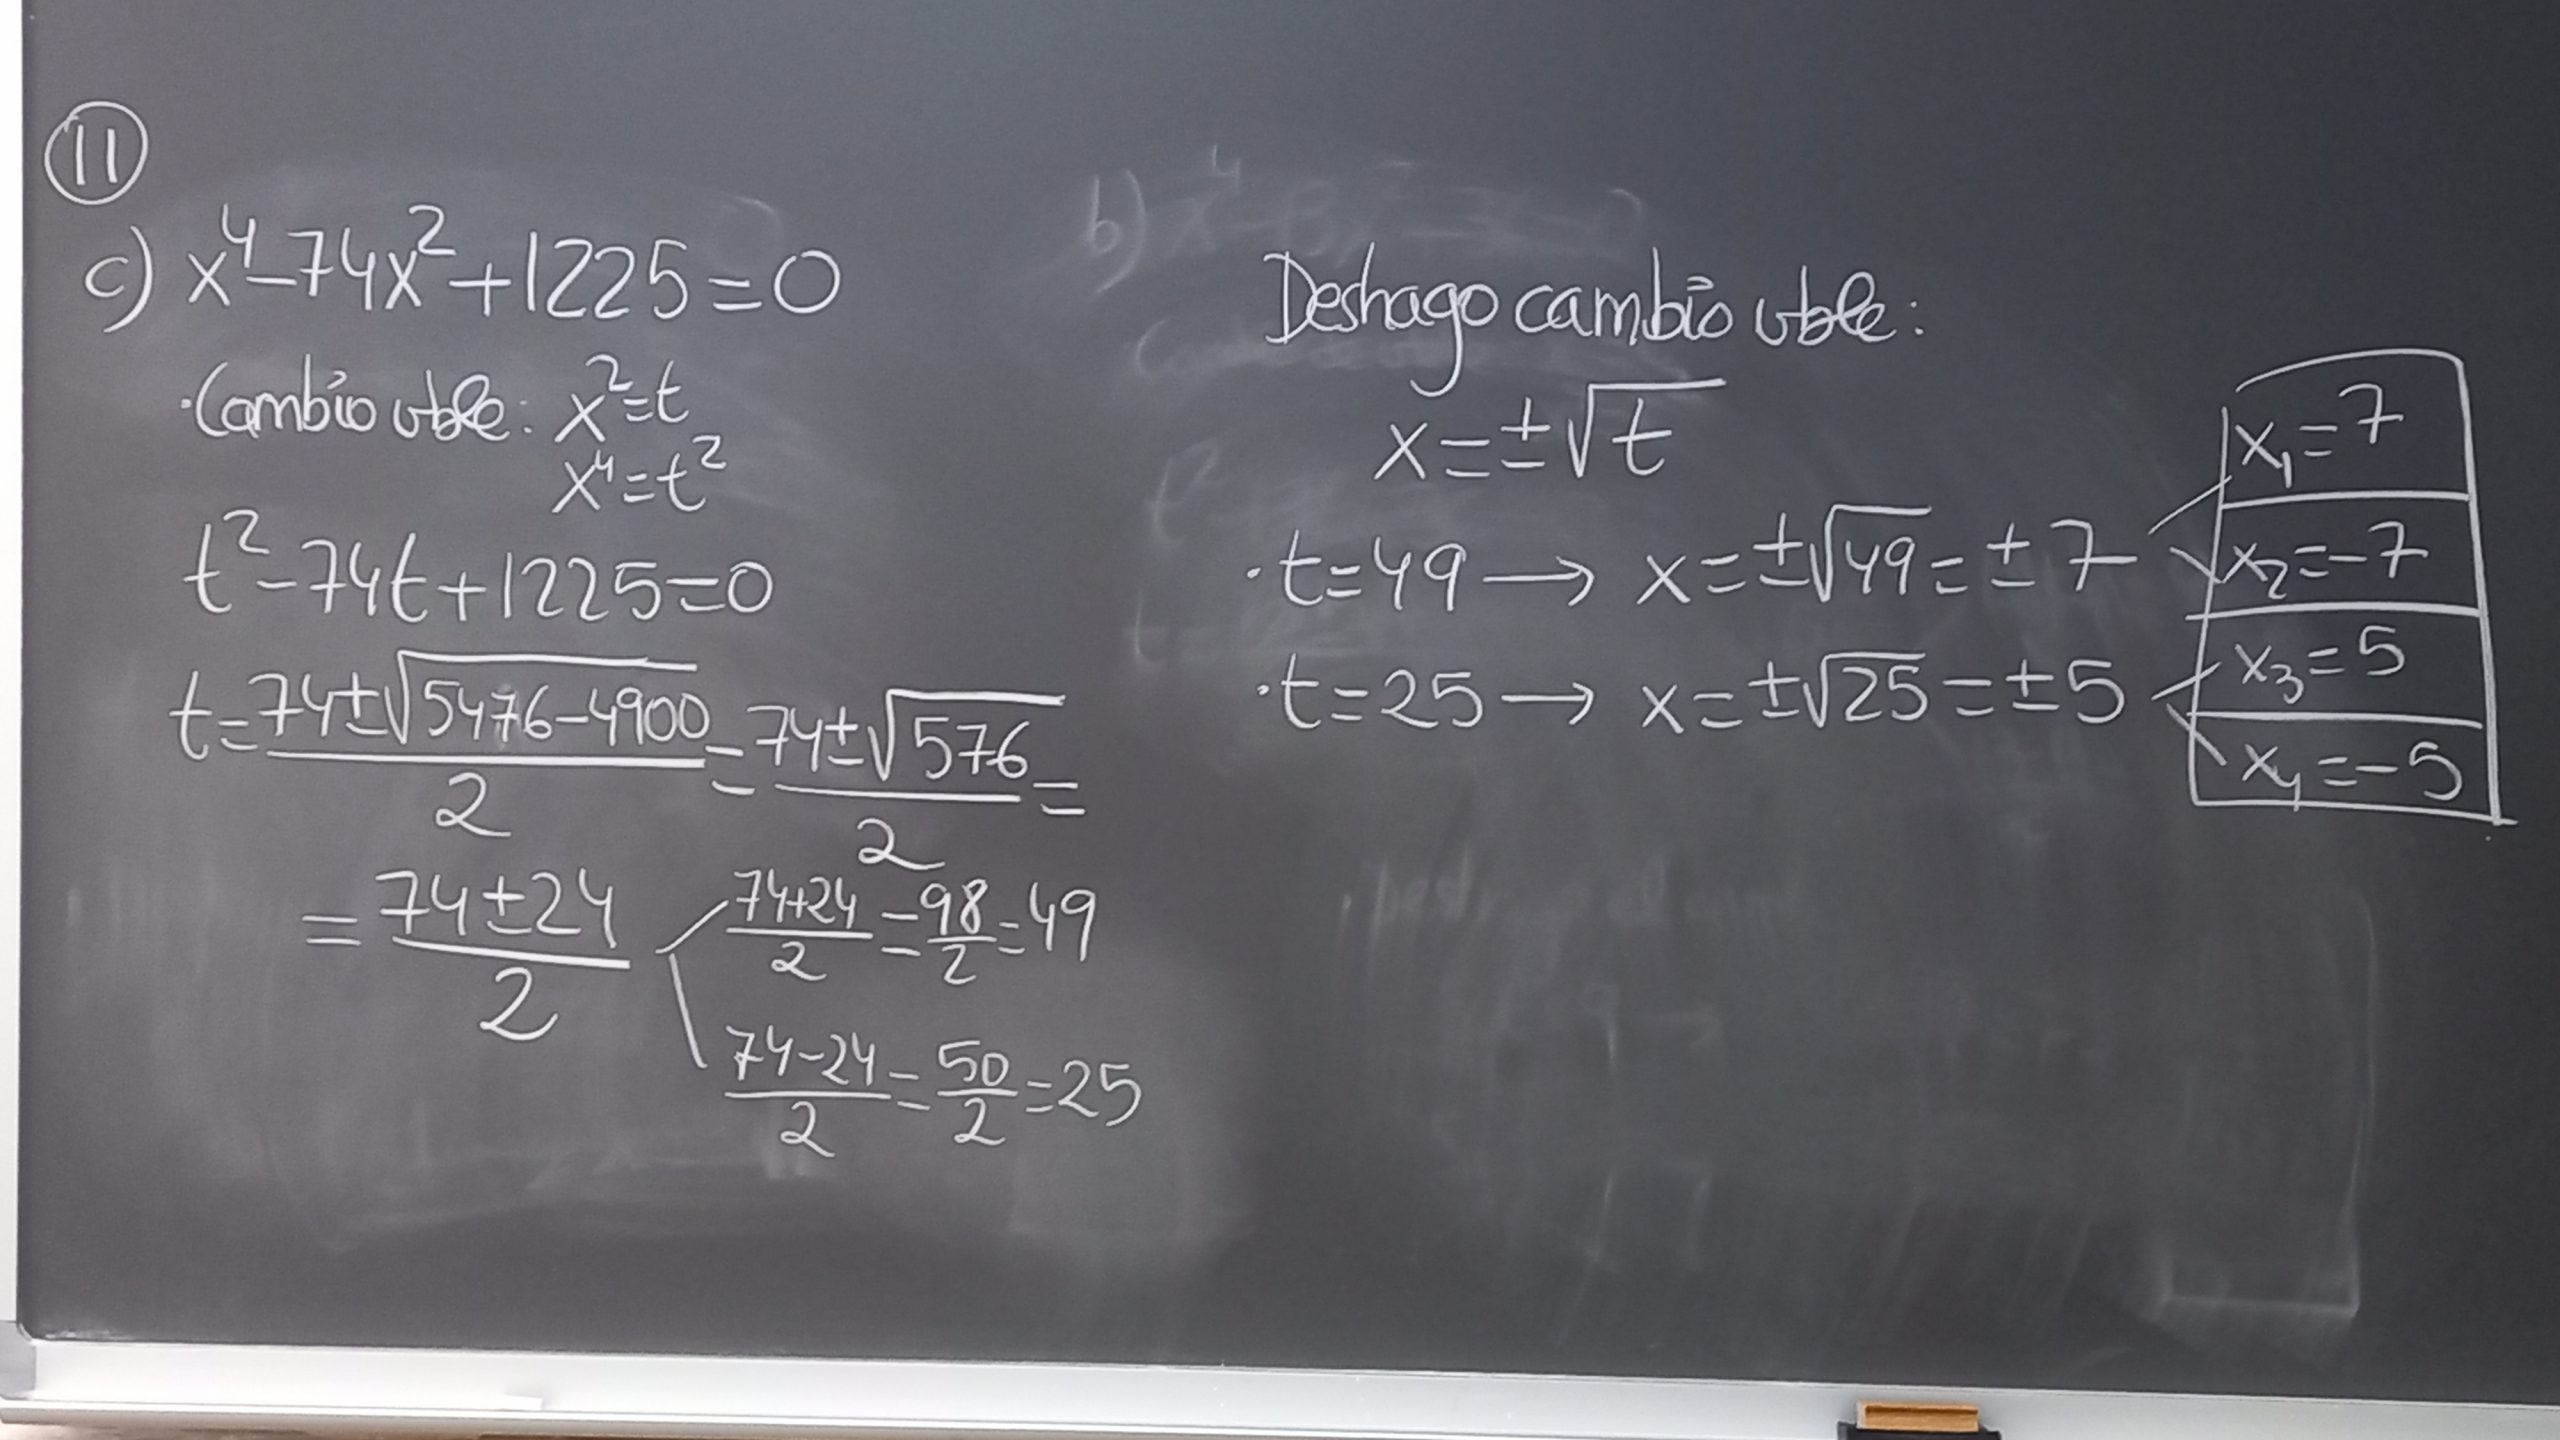 11
c) x⁴-74x²+1225=0
·Cambio vble: x²=t
x⁴=t²
t²-74t+1225=0
t=(74±√(5476-4900))/2=(74±√576)/2=
=(74±24)/2
(74+24)/2=98/2=49
(74-24)/2=50/2=25
Deshago cambio vble:
x=±√t
·t=49→x=±√49=±7
·t=25→x=±√25=±5
x₁=7
x₂=-7
x₃=5
x₄=-5